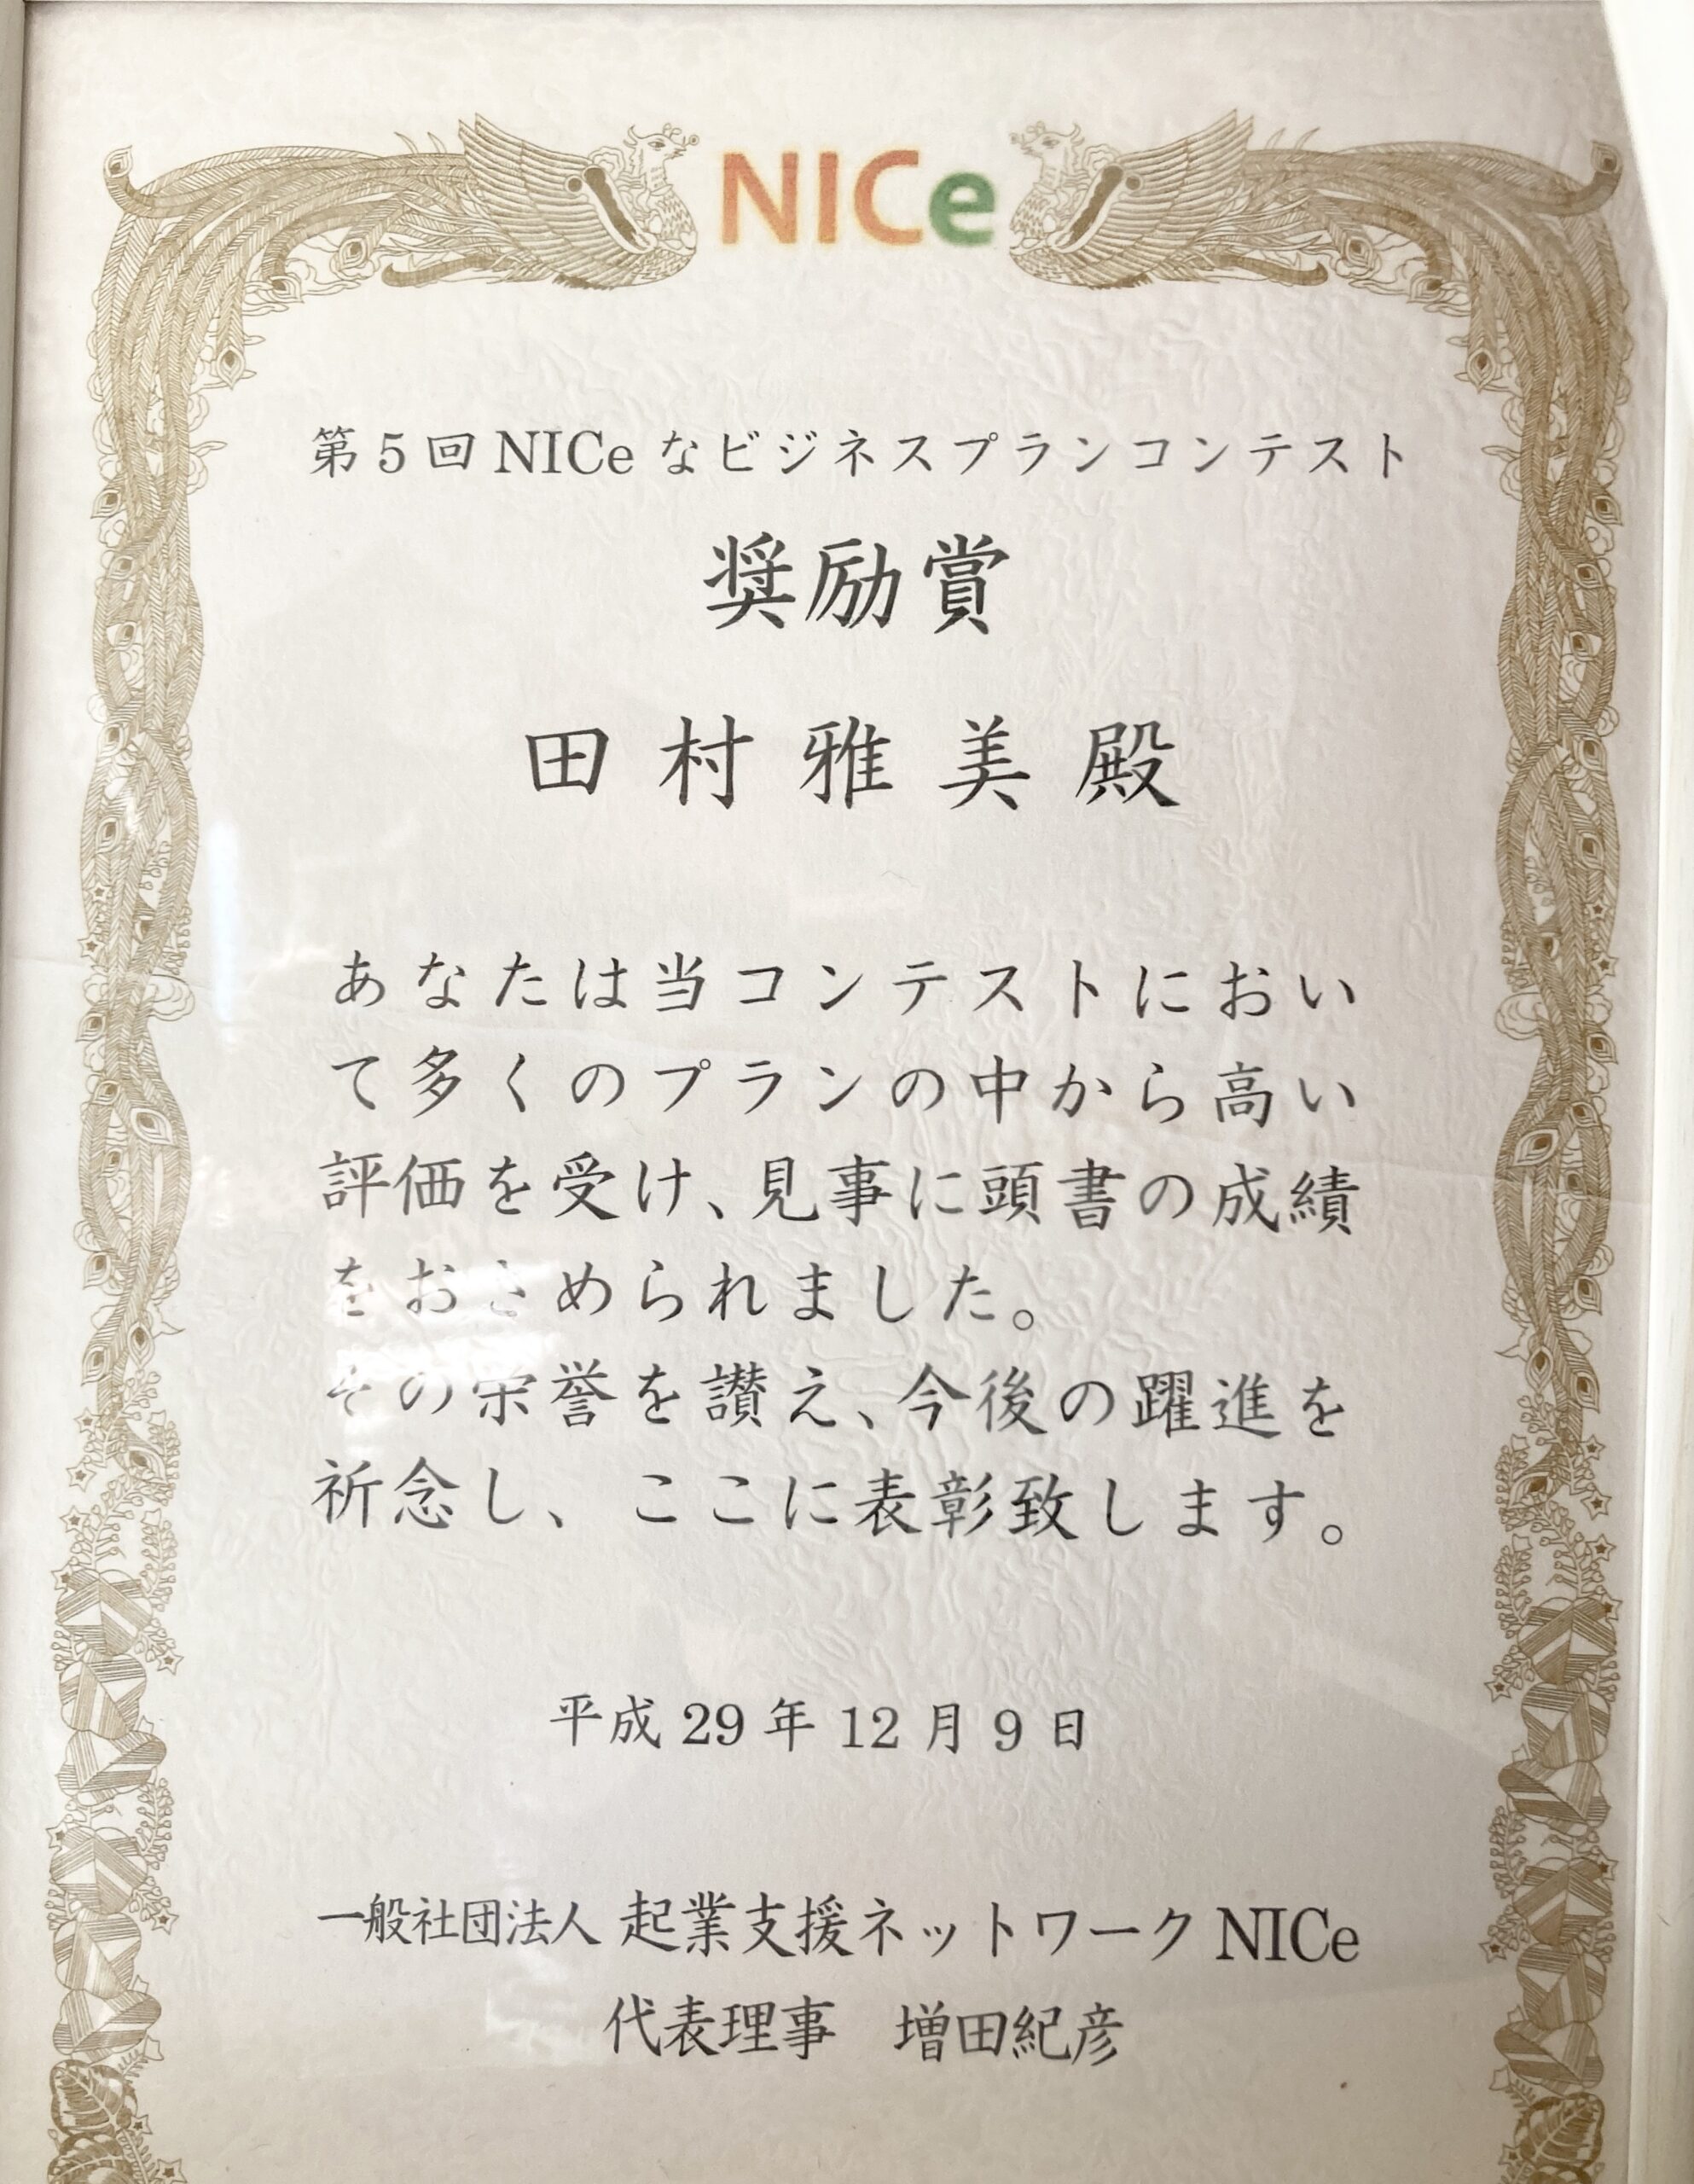 NICe
第5回NICeなビジネスプランコンテスト
奨励賞
田村雅美殿
あなたは当コンテストにおい
て多くのプランの中から高い
評価を受け、見事に頭書の成績
をおさめられました。
その栄誉を讃え、今後の躍進を
祈念し、ここに表彰致します。
平成29年12月9日
一般社団法人 起業支援ネットワークNICe
代表理事　増田紀彦